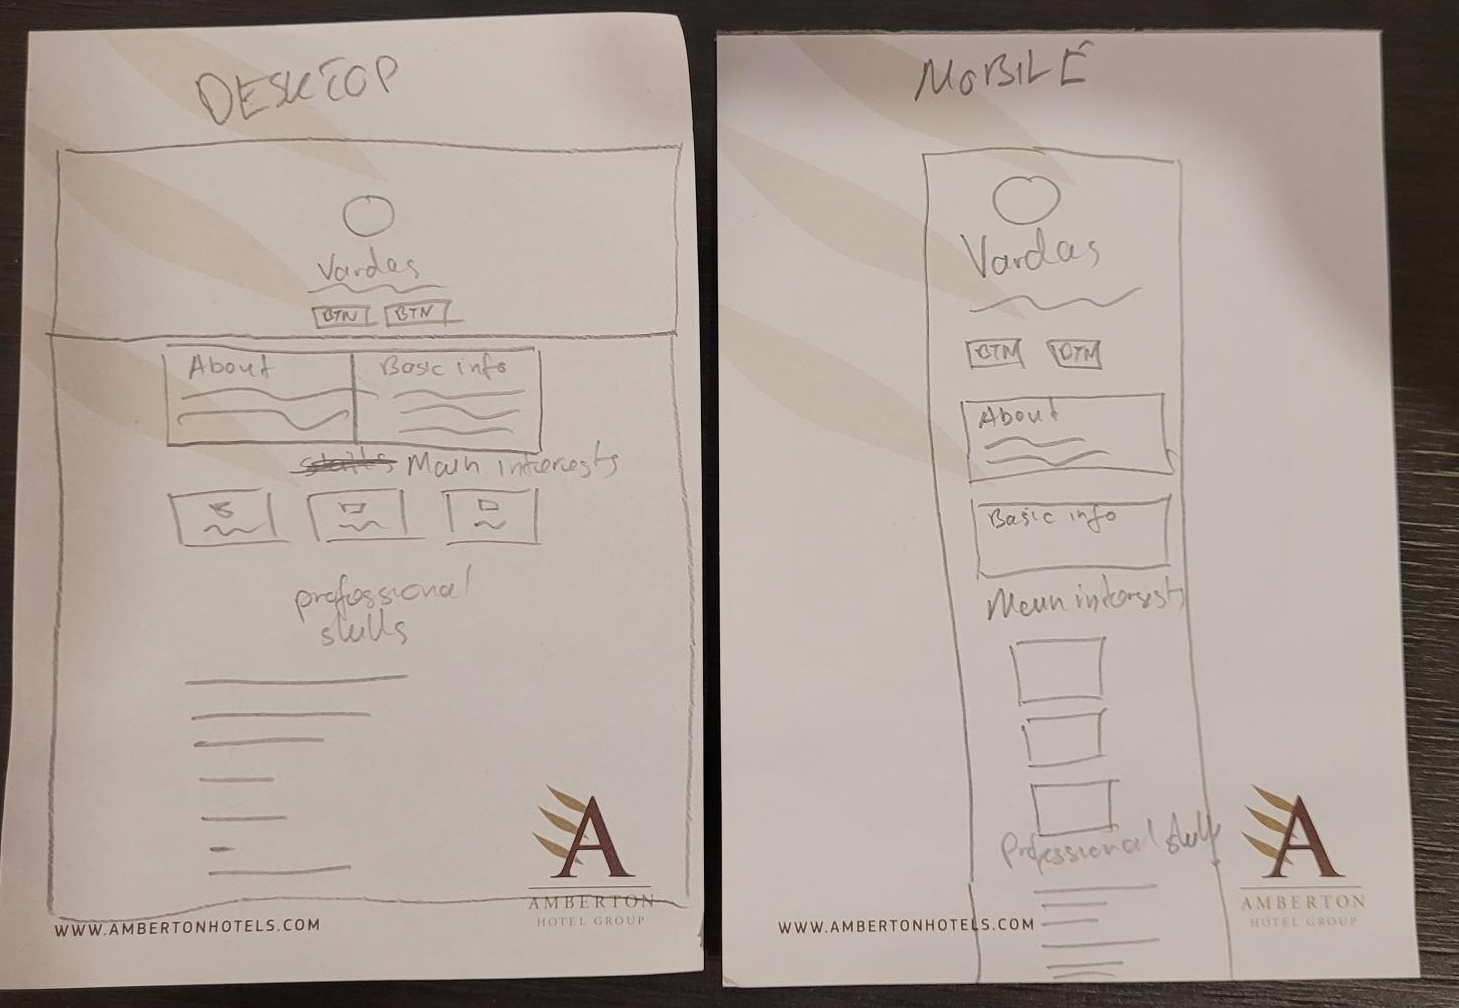 DESKTOP
Vardas
BTN BTN
About
Basic info
Main interests
professional
skills
A
AMBERTON
HOTEL GROUP
WWW.AMBERTONHOTELS.COM
MOBILE
Vardas
BTN BTN
About
Basic info
Main interests
Professional skills
A
AMBERTON
HOTEL GROUP
WWW.AMBERTONHOTELS.COM